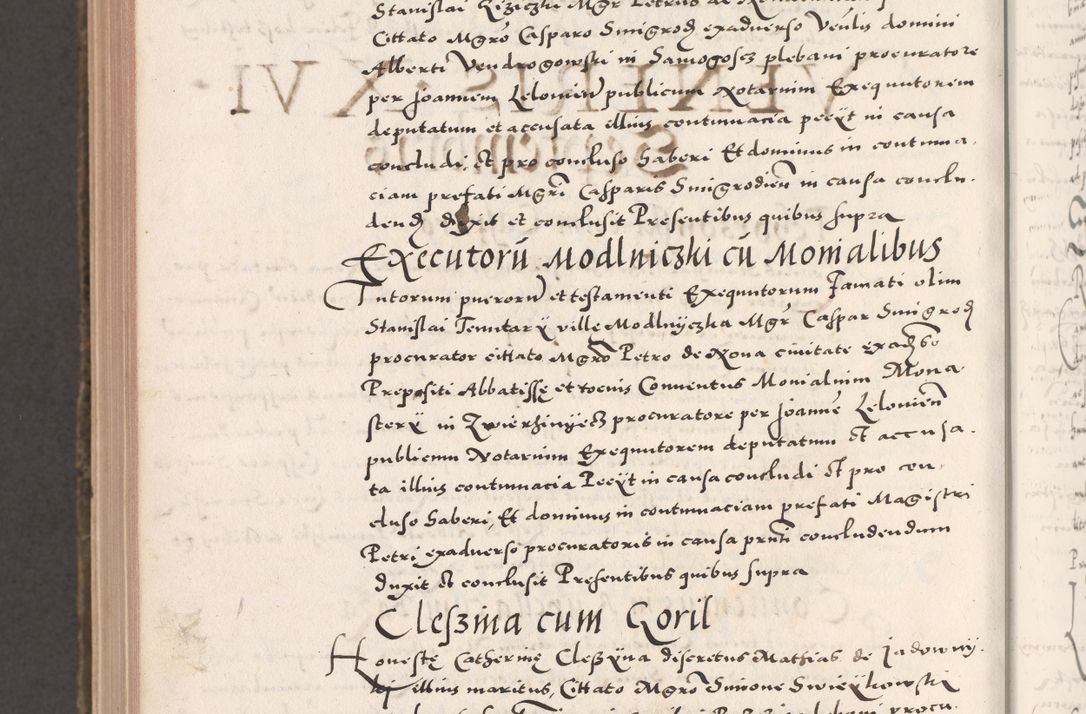 Stanislai Kiziczki Mgr Petrus de
Cittato Mgro Casparo Smigrod exadverso Venlis domini
Alberti Vendrogowski in Samogoscz plebani procuratore
per Joannem Lelovien publicum Notarium Exequutorem
deputatum et accusata illius contumacia peeyt in causa
concludi, Et pro concluso haberi Et dominus in contuma-
ciam prefati Mgri Casparis Smigrodien in causa conclu-
dend duxit et conclusit Presentibus quibus supra
Executorū Modlniczki cū Monialibus
Tutorum puerorū et testamenti Exequutorum Famati olim
Stanislai Tenutary ville Modlnyczka Mgr Caspar Smigrod
procurator cittato Mgro Petro de Nova civitate exadso
Prepositi Abbatissę et tocius Conventus Monialium Mona
stery in Zwierzinyecz procuratore per Joanne Lelovien
publicum Notarium Exequutorem deputatum Et accusa-
ta illius contumacia Peeyt in causa concludi Et pro con-
cluso haberi, Et dominus in contumaciam prefati Magistri
Petri exadverso procuratoris in causa pnti concludendum
duxit et conclusit Presentibus quibus supra
Cleszina cum Goril
Honestę Catherinę Cleszyna discretus Mathias de Jadowny-
ki illius maritus, Cittato Mgro Simone Swieykowski